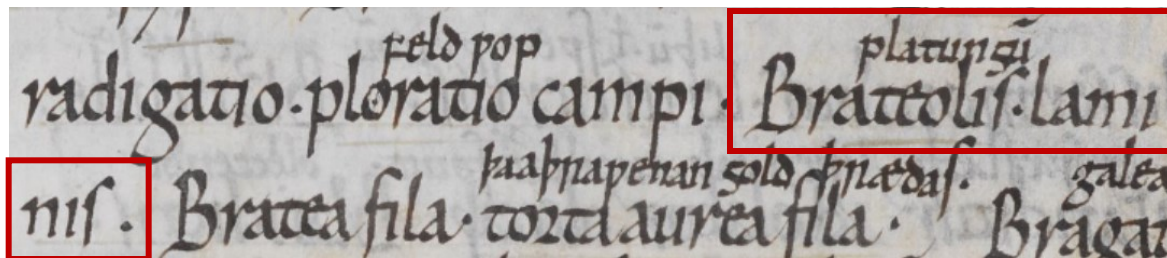 feld ƿop platungū
radigatio · ploratio campi · Brateolis · lami
þaaþraƿenan gold þrædas . galea
nis . Bratea fila · torta aurea fila · Bragat